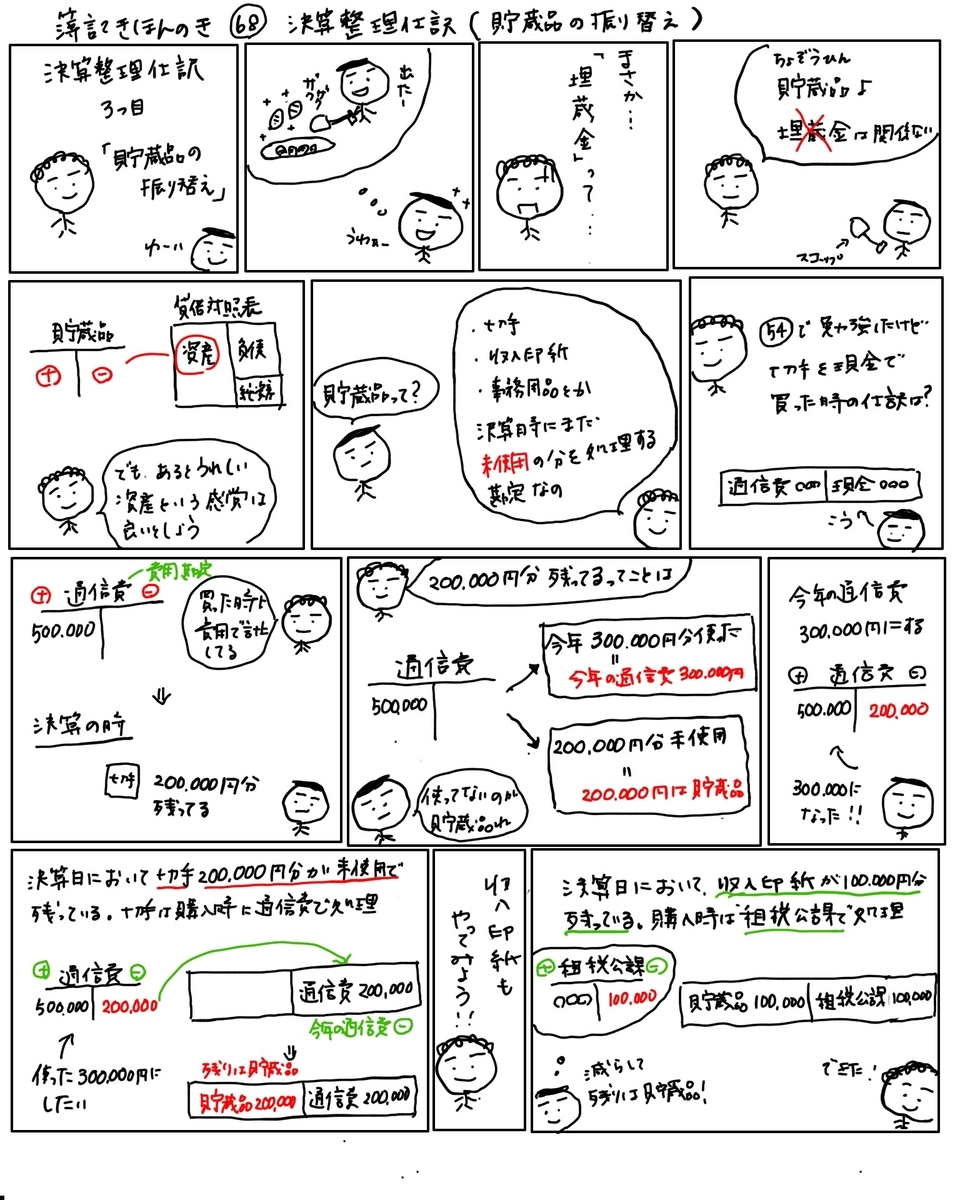 簿記きほんのき 68 決算整理仕訳(貯蔵品の振り替え)
決算整理仕訳
3つ目
「貯蔵品の
振り替え」
わーい
出たー
ガッ
ガッ
うわぁー
まさか…
「埋蔵金」って…
ちょぞうひん
貯蔵品よ
埋蔵金は関係ない
スコップ
貯蔵品
+ -
貸借対照表
資産 負債
純資産
でも、あるとうれしい
資産という感覚は
良いとしよう
貯蔵品って?
・切手
・収入印紙
・事務用品とか
決算時にまだ
未使用の分を処理する
勘定なの
54で勉強したけど
切手を現金で
買った時の仕訳は?
通信費 000 現金 000
こう
費用勘定
+ 通信費 -
500.000
買った時は
費用で計上
してる
⇓
決算の時
切手 200.000円分
残ってる
200.000円分 残ってるってことは
通信費
500.000
今年 300.000円分使った
=
今年の通信費 300.000円
200.000円分 未使用
=
200.000円は貯蔵品
使ってないのが
貯蔵品ね
今年の通信費
300.000円にする
+ 通信費 -
500.000 200.000
300.000に
なった!!
決算日において切手200.000円分が未使用で
残っている。切手は購入時に通信費で処理
+ 通信費 -
500.000 200.000
通信費 200,000
今年の通信費 -
使った300.000円に
したい
残りは貯蔵品
貯蔵品 200,000 通信費 200,000
収入印紙も
やってみよう!!
決算日において、収入印紙が100.000円分
残っている。購入時は租税公課で処理
+ 租税公課 -
000 100.000
貯蔵品 100,000 租税公課 100,000
減らして
残りは貯蔵品!
できた!